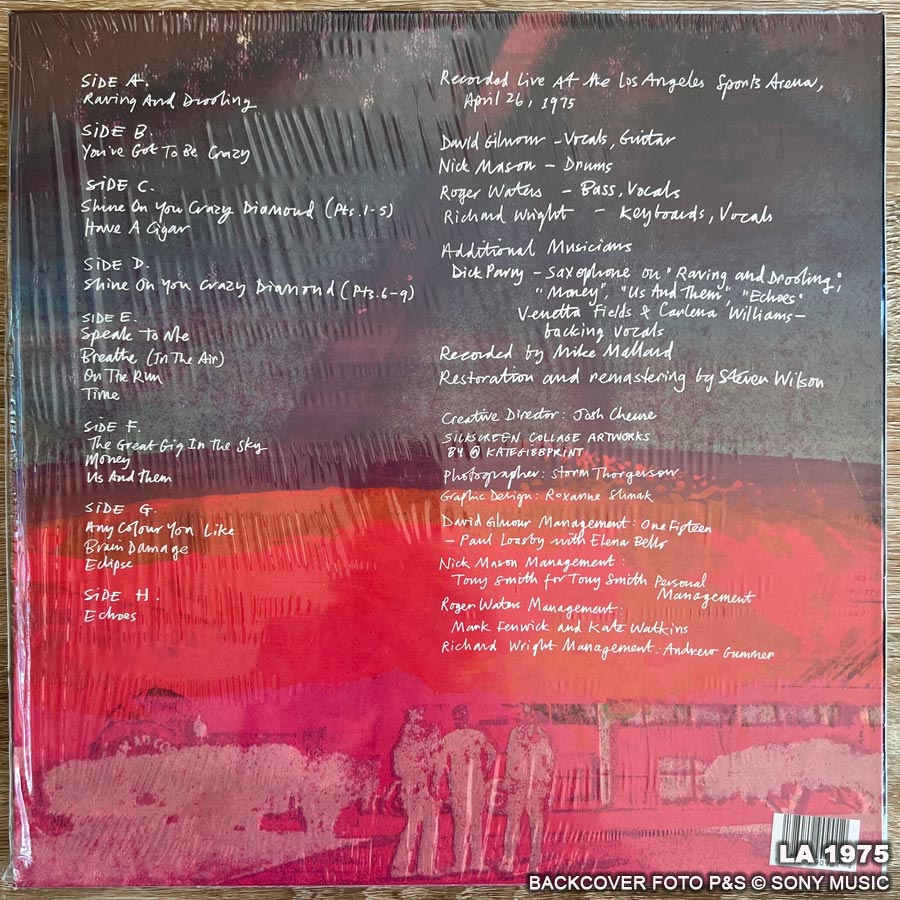 SIDE A.
Raving And Drooling
SIDE B.
You've Got To Be Crazy
SIDE C.
Shine On You Crazy Diamond (Pts. 1-5)
Have A Cigar
SIDE D.
Shine On You Crazy Diamond (Pts. 6-9)
SIDE E.
Speak To Me
Breathe (In The Air)
On The Run
Time
SIDE F.
The Great Gig In The Sky
Money
Us And Them
SIDE G.
Any Colour You Like
Brain Damage
Eclipse
SIDE H.
Echoes
Recorded Live At the Los Angeles Sports Arena,
April 26, 1975
David Gilmour - Vocals, Guitar
Nick Mason - Drums
Roger Waters - Bass, Vocals
Richard Wright - Keyboards, Vocals
Additional Musicians
Dick Parry - Saxophone on "Raving and Drooling",
"Money", "Us And Them", "Echoes"
Venetta Fields & Carlena Williams -
backing vocals
Recorded by Mike Millard
Restoration and remastering by Steven Wilson
Creative Director: Josh Cheuse
SILKSCREEN COLLAGE ARTWORKS
BY @ KATEGIBBPRINT
Photographer: Storm Thorgerson
Graphic Design: Roxanne Slimak
David Gilmour Management: One Fifteen
- Paul Loasby with Elena Bello
Nick Mason Management:
Tony Smith for Tony Smith Personal
Management
Roger Waters Management:
Mark Fenwick and Kate Watkins
Richard Wright Management: Andrew Gummer
LA 1975
BACKCOVER FOTO P&S © SONY MUSIC